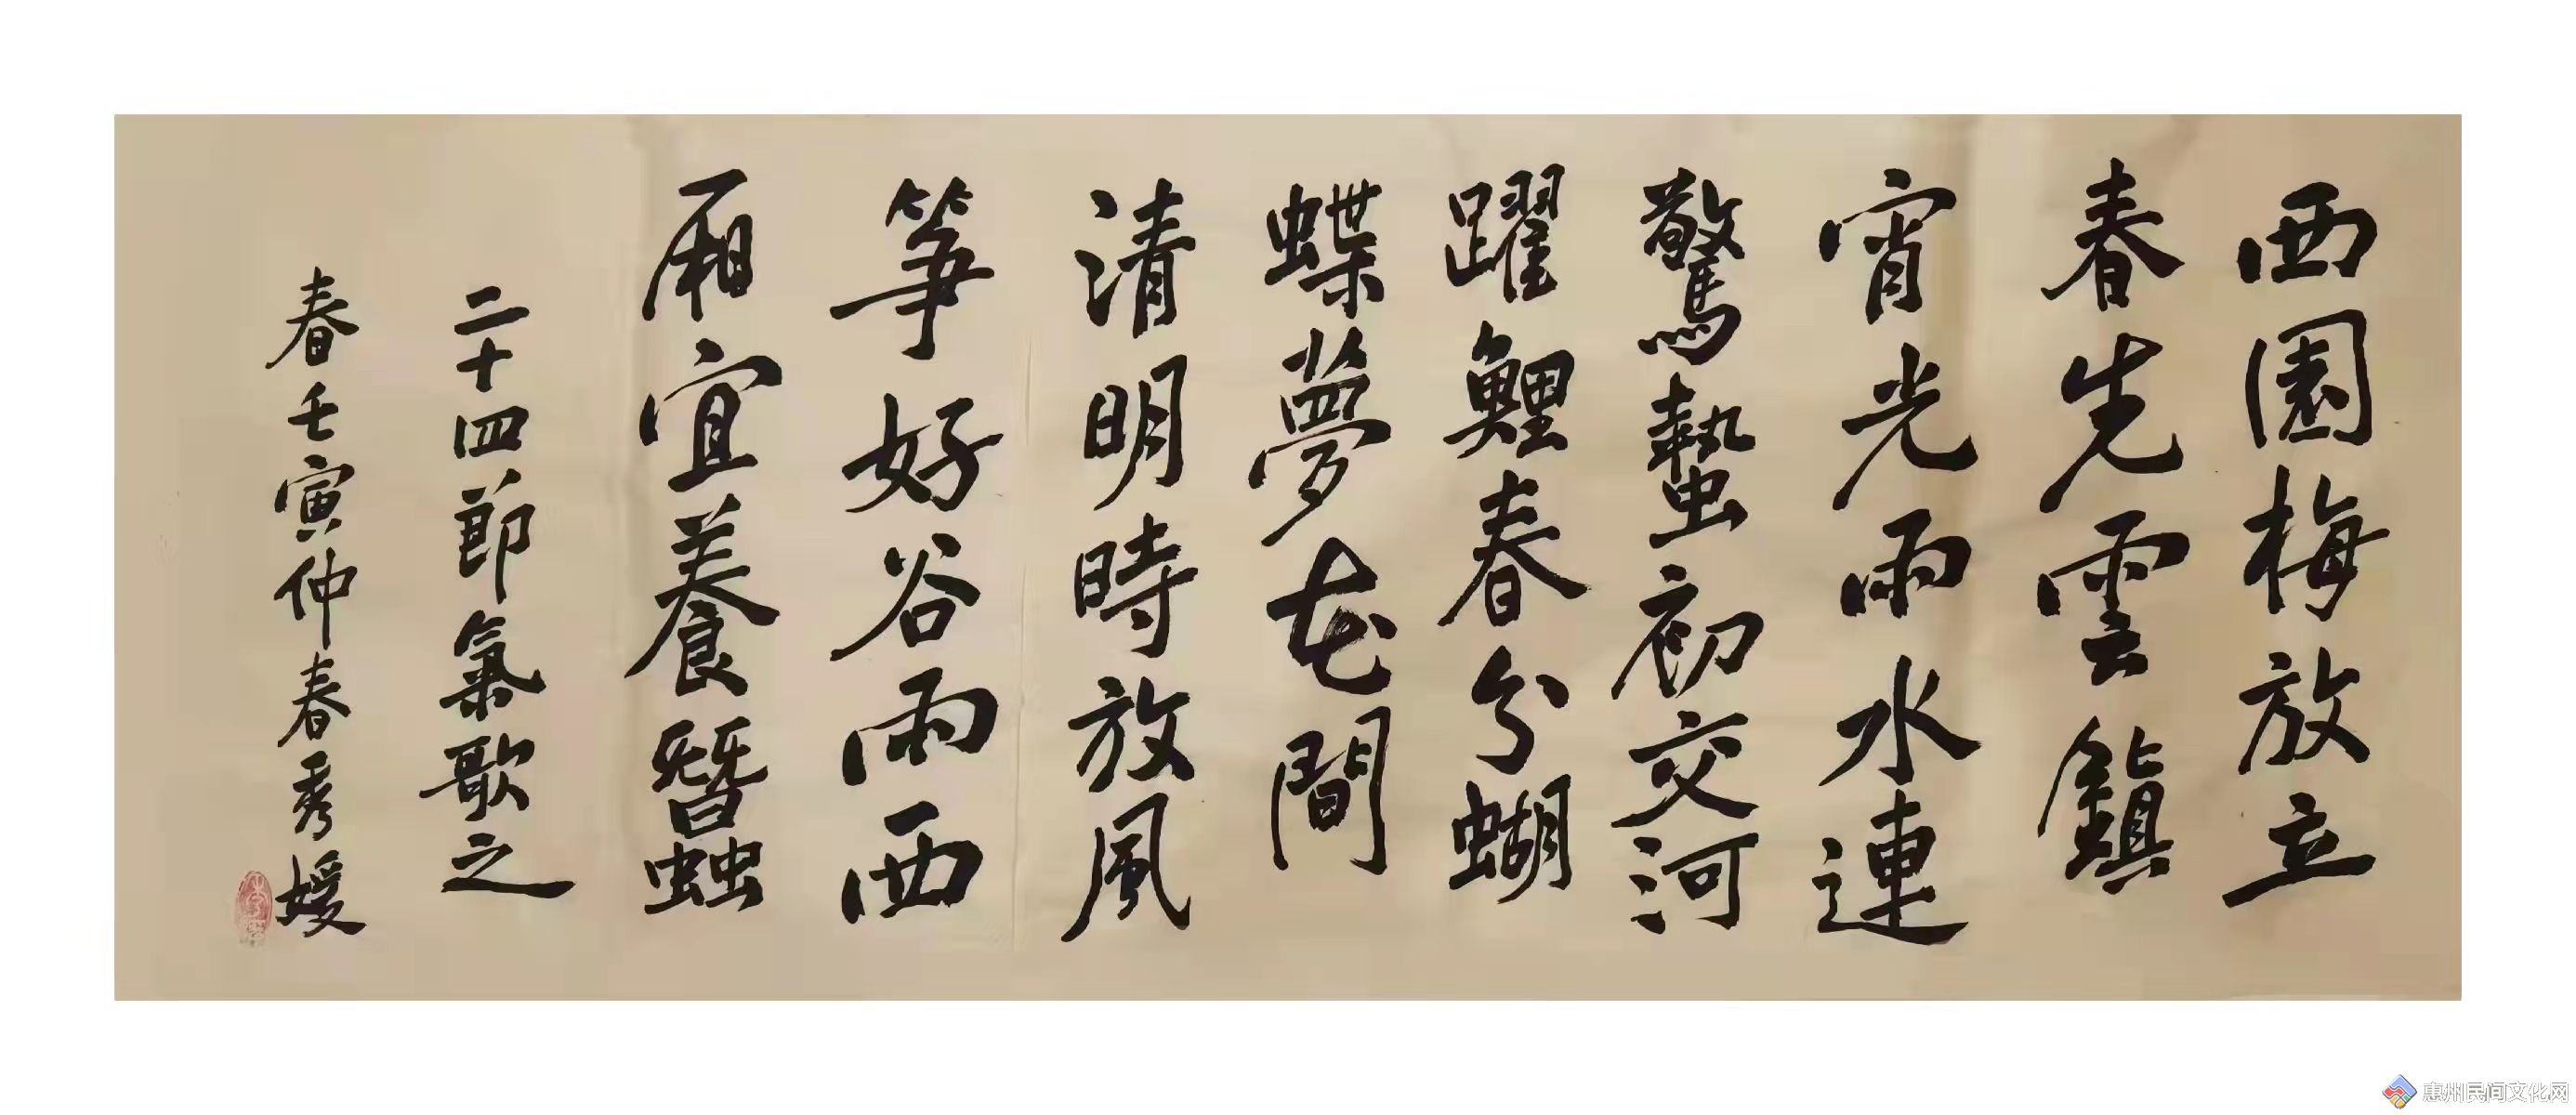 西園梅放立
春先雲鎮
宵光雨水連
驚蟄初交河
躍鯉春分蝴
蝶夢花間
清明時放風
箏好谷雨西
廂宜養蠶
二十四節氣歌之
春壬寅仲春秀媛
惠州民间文化网